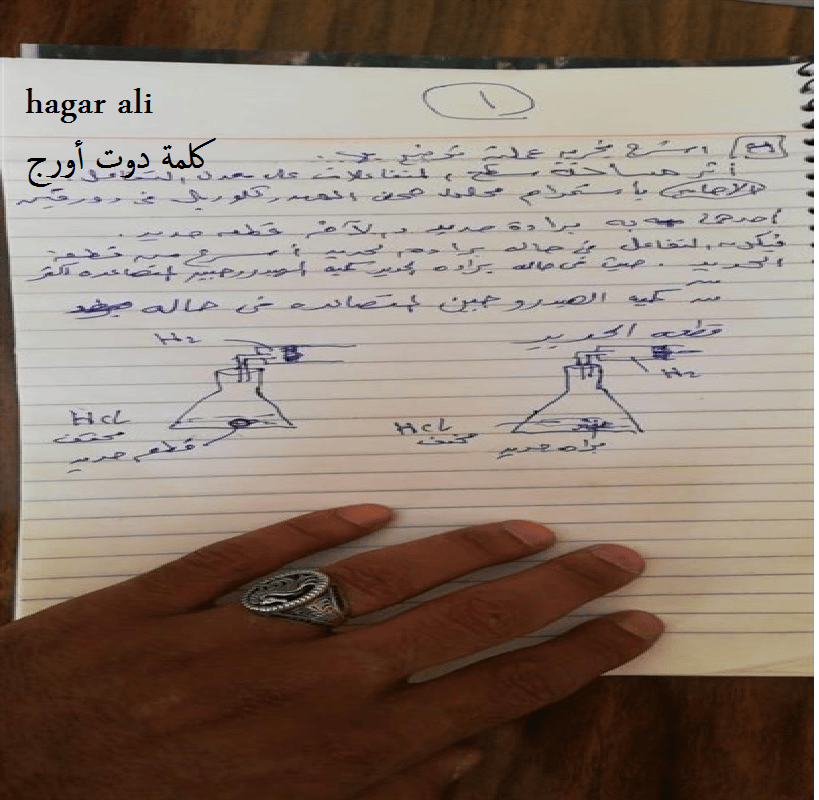 hagar ali
كلمة دوت أورج
١
اشرح تجربة عملية توضح
أثر مساحة سطح المتفاعلات على معدل التفاعل.
الاجابة باستخدام محلول حمض الهيدروكلوريك فى دورقين
أحدهما به برادة حديد والآخر قطعه حديد.
فيكون التفاعل فى حاله برادة الحديد أسرع من قطعة
الحديد. حيث فى حاله براده الحديد كمية الهيدروجين المتصاعده أكثر
من كميه الهيدروجين المتصاعده فى حاله
قطعه الحديد
H2
H2
HCL
مخفف
قطعه حديد
HCL
مخفف
براده حديد